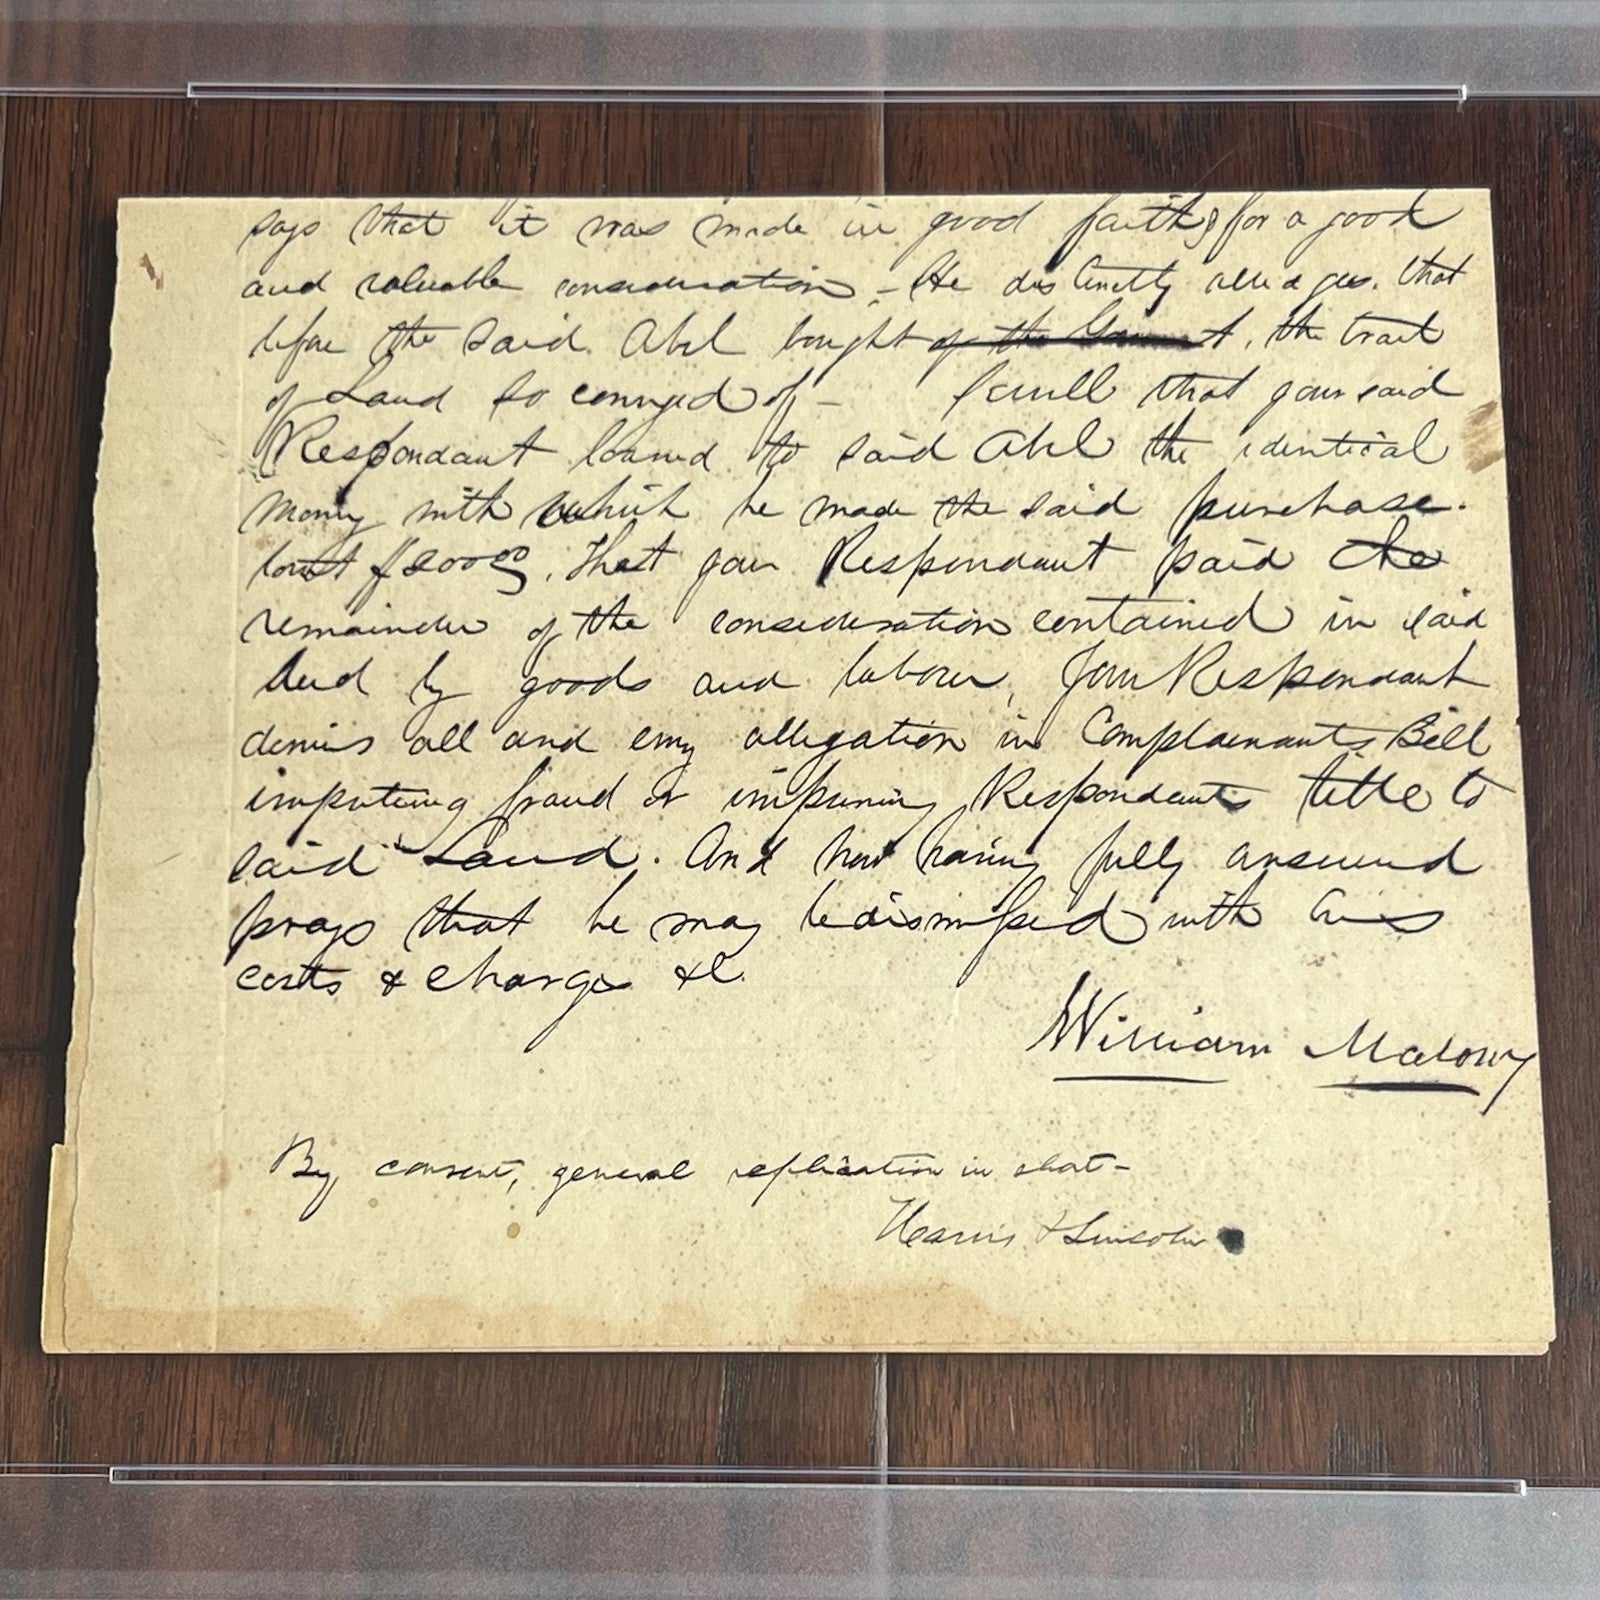 says that it was made in good faith & for a good
and valuable consideration, - He distinctly alledges. that
before the said Abel bought of the t, the tract
of Land so conveyed of - that your said
Respondant loaned to said Abel the identical
money with which he made the said purchase.
towit $200.00, That your Respondant paid the
remainder of the consideration contained in said
deed by goods and labour, Your Respondant
denies all and evry allegation in Complainants Bill
imputeing fraud or impuning Respondants title to
said Land. And now having fully answered
prays that he may be dismissed with his
costs & charges &C
William Malony
By consent, general replication in short -
& Lincoln